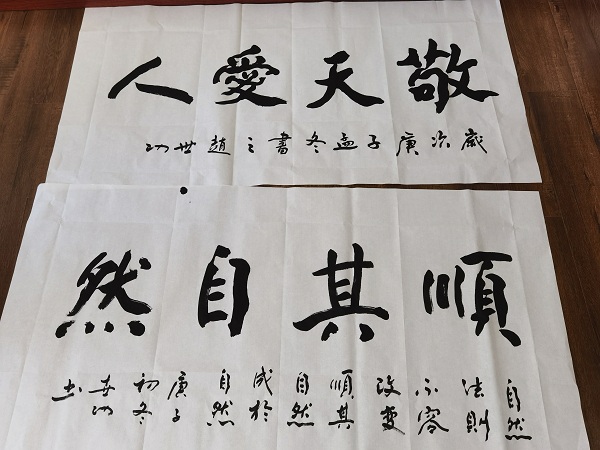 敬天愛人
歲次庚子孟冬書之趙世功
順其自然
自然法則不容改變順其自然成於自然庚子初冬世功書